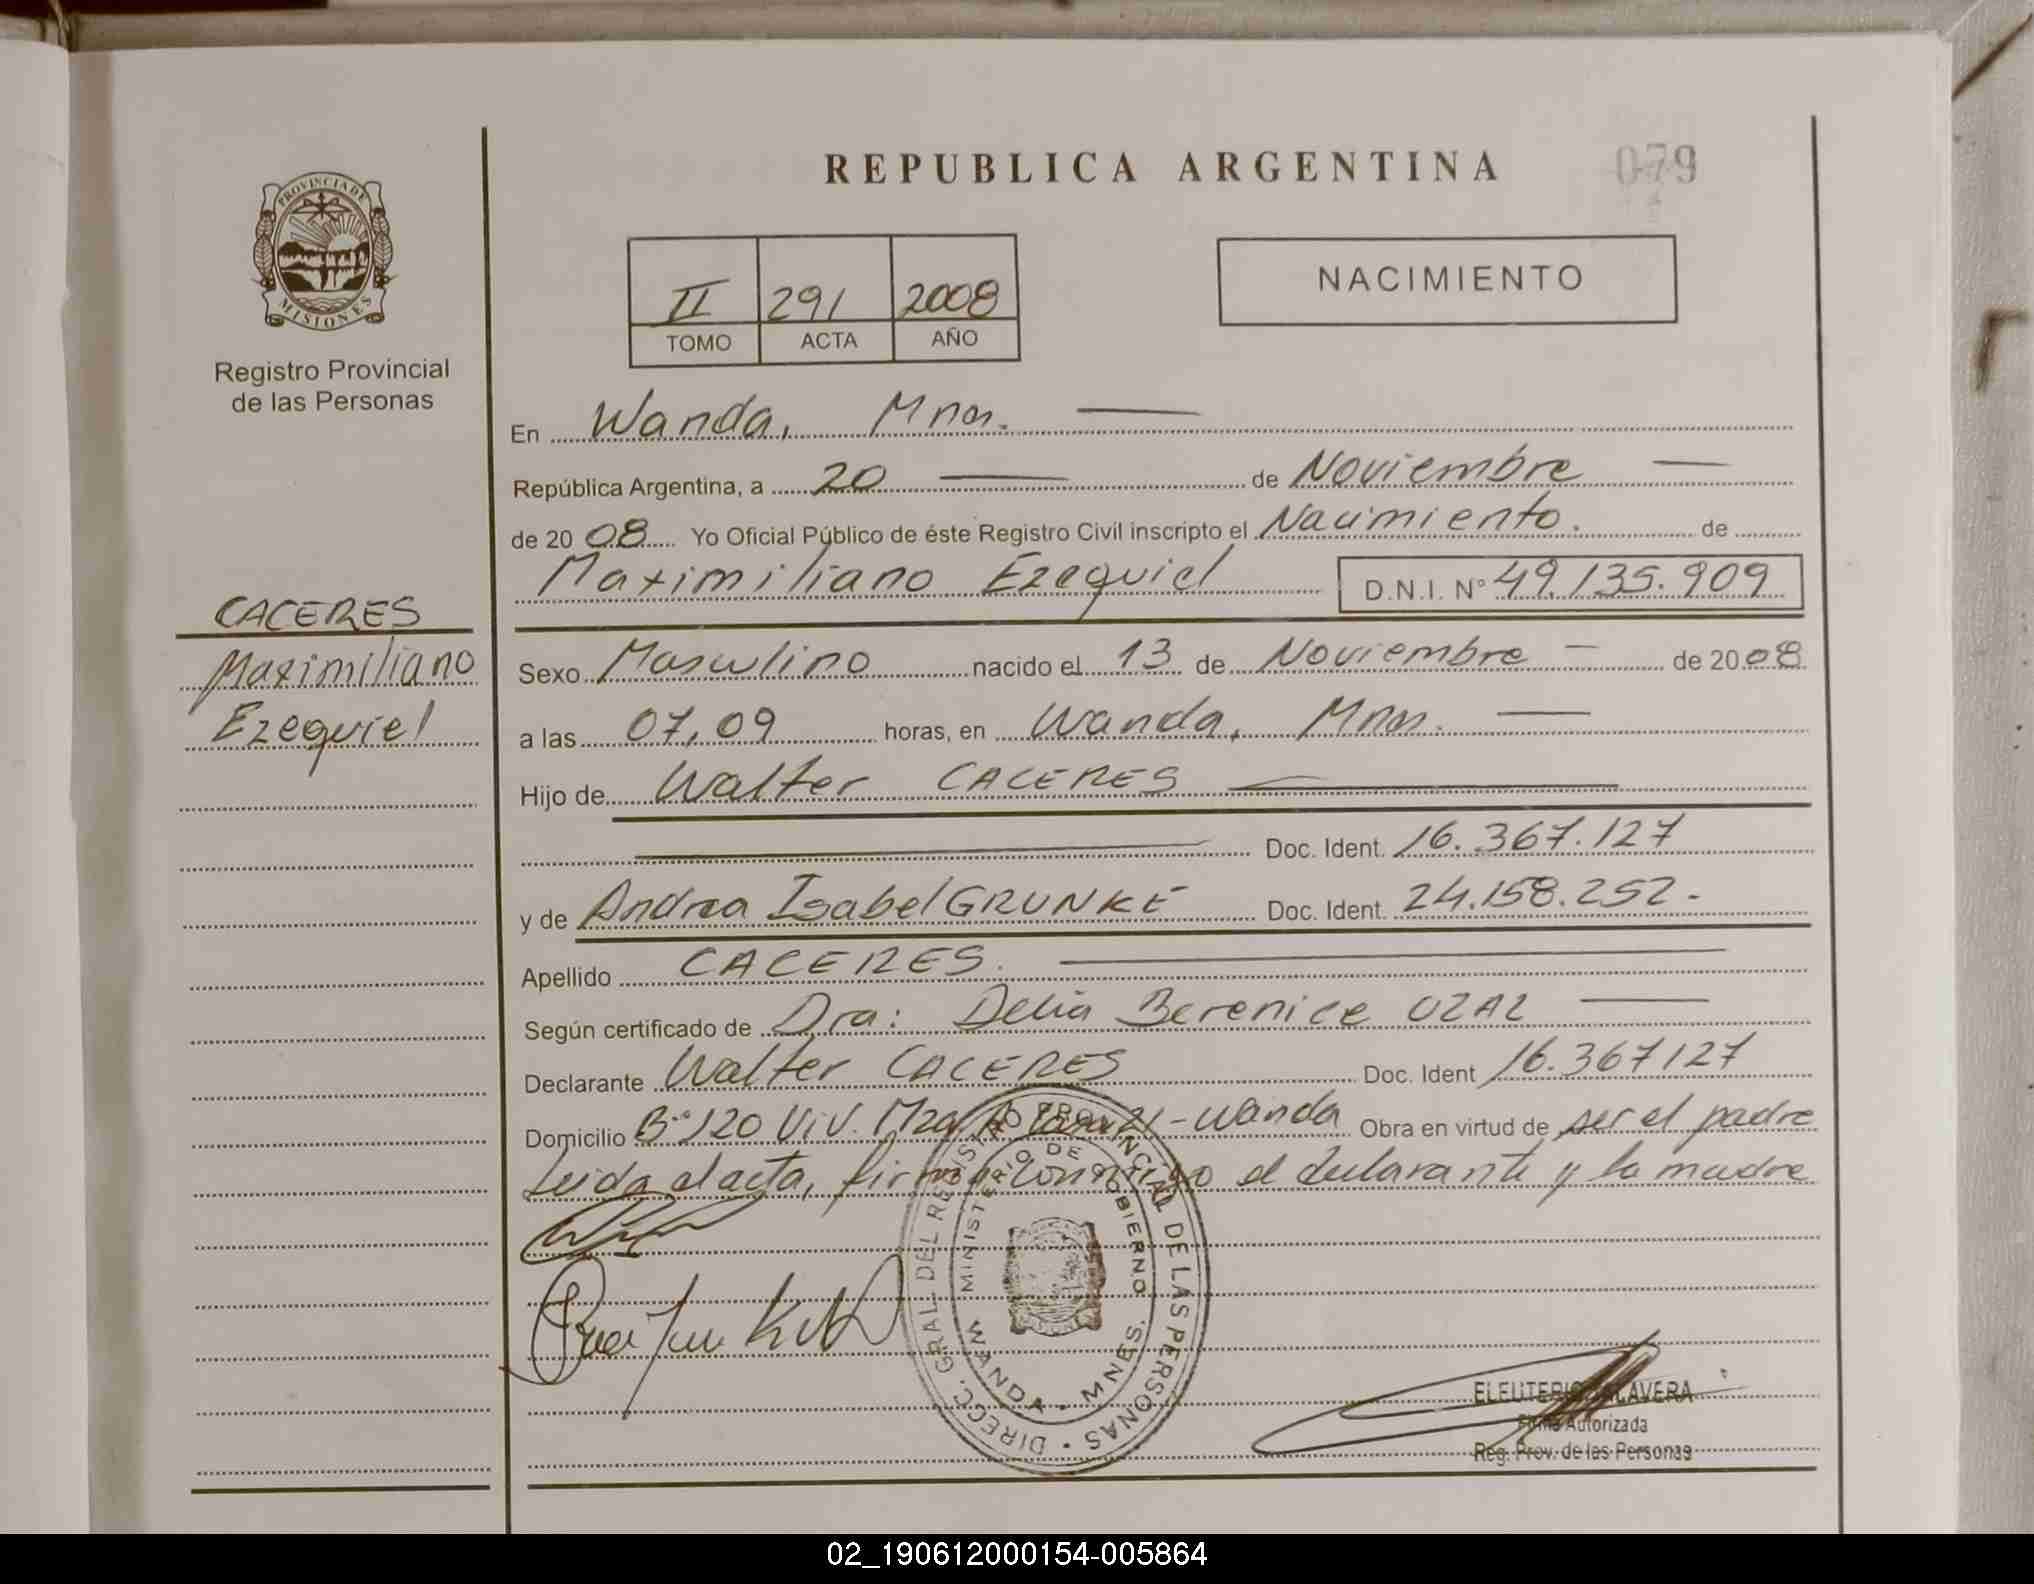 REPUBLICA ARGENTINA
079
PROVINCIA DE
MISIONES
Registro Provincial
de las Personas
NACIMIENTO
II 291 2008
TOMO ACTA AÑO
En Wanda, Mnes.
República Argentina, a 20 de Noviembre
de 2008 Yo Oficial Público de éste Registro Civil inscripto el Nacimiento. de
Maximiliano Ezequiel D.N.I. Nº 49.135.909
CACERES
Maximiliano
Ezequiel
Sexo Masculino nacido el 13 de Noviembre de 2008
a las 07,09 horas, en Wanda, Mnes.
Hijo de Walter CACERES
Doc. Ident. 16.367.127
y de Andrea Isabel GRUNKE Doc. Ident. 24.158.252.-
Apellido CACERES.
Según certificado de Dra: Delia Berenice UZAL
Declarante Walter CACERES Doc. Ident 16.367127
Domicilio Bº 120 Viv. Mza A Casa 21 - Wanda Obra en virtud de ser el padre
Leida el acta, firman conmigo el declarante y la madre
DIRECC. GRAL. DEL REGISTRO PROVINCIAL DE LAS PERSONAS
MINISTERIO DE GOBIERNO
WANDA - MNES.
ELEUTERIO TALAVERA
Firma Autorizada
Reg. Prov. de las Personas
02_190612000154-005864